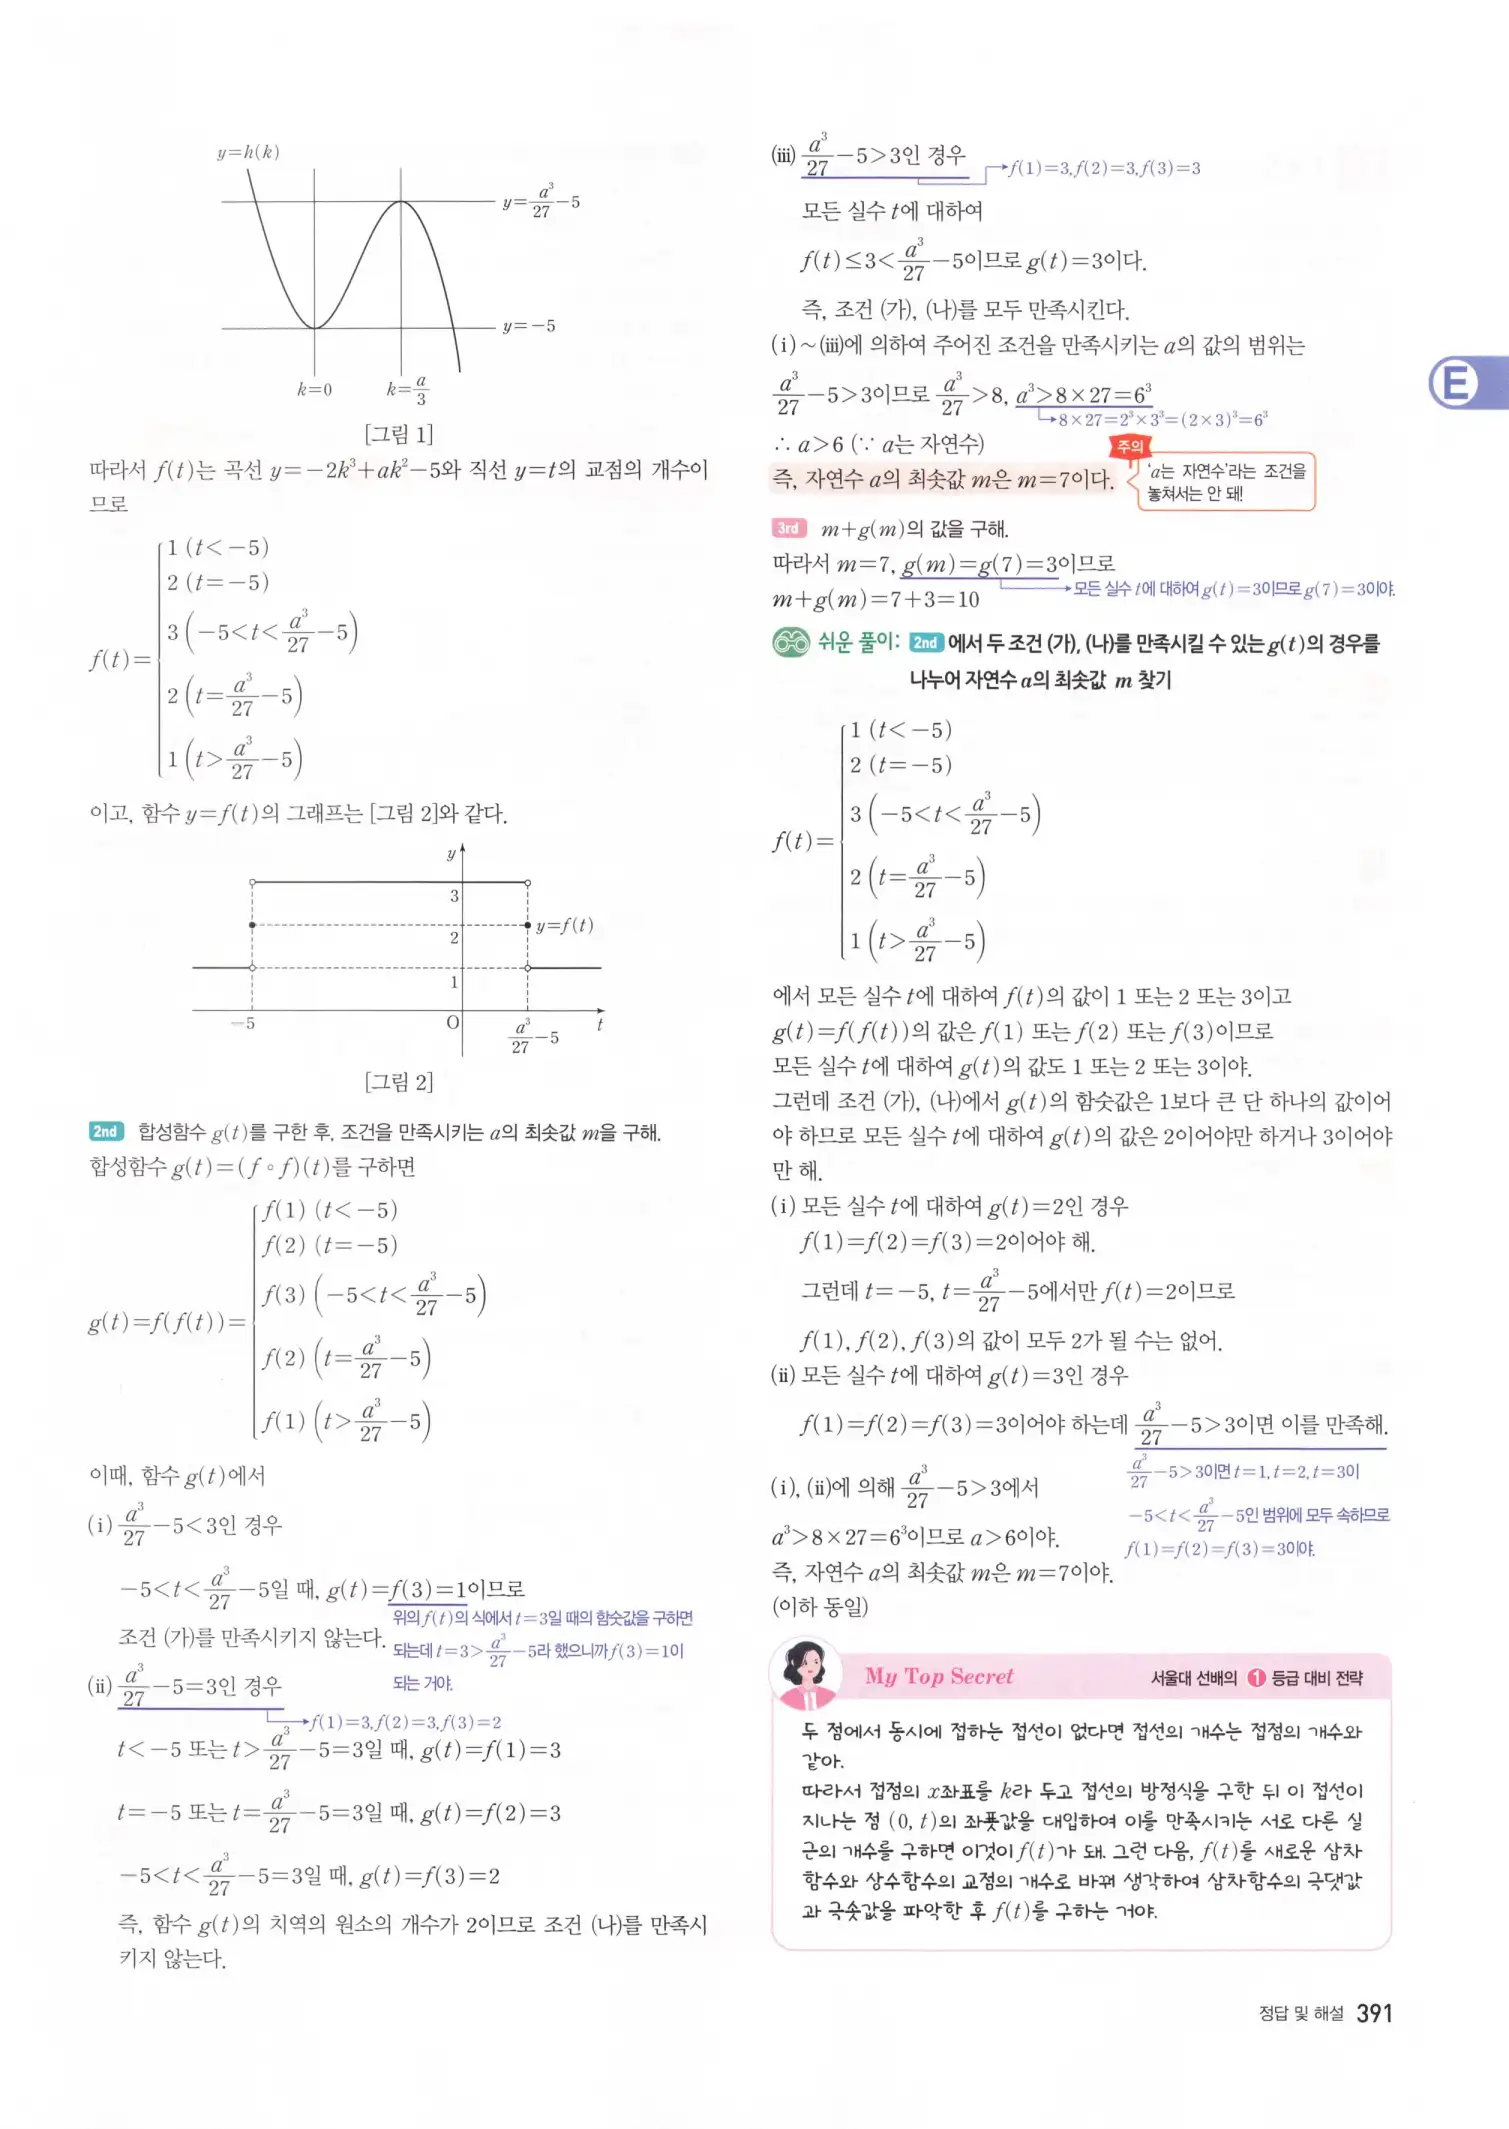 y=h(k)
y=a³/27−5
y=−5
k=0 k=a/3
[그림 1]
따라서 f(t)는 곡선 y=−2k³+ak²−5와 직선 y=t의 교점의 개수이
므로
f(t)=
1 (t<−5)
2 (t=−5)
3 (−5<t<a³/27−5)
2 (t=a³/27−5)
1 (t>a³/27−5)
이고, 함수 y=f(t)의 그래프는 [그림 2]와 같다.
y
3
y=f(t)
2
1
−5 O a³/27−5 t
[그림 2]
2nd 합성함수 g(t)를 구한 후, 조건을 만족시키는 a의 최솟값 m을 구해.
합성함수 g(t)=(f∘f)(t)를 구하면
g(t)=f(f(t))=
f(1) (t<−5)
f(2) (t=−5)
f(3) (−5<t<a³/27−5)
f(2) (t=a³/27−5)
f(1) (t>a³/27−5)
이때, 함수 g(t)에서
(ⅰ) a³/27−5<3인 경우
−5<t<a³/27−5일 때, g(t)=f(3)=1이므로
조건 (가)를 만족시키지 않는다.
위의 f(t)의 식에서 t=3일 때의 함숫값을 구하면
되는데 t=3>a³/27−5라 했으니까 f(3)=1이
되는 거야.
(ⅱ) a³/27−5=3인 경우
f(1)=3, f(2)=3, f(3)=2
t<−5 또는 t>a³/27−5=3일 때, g(t)=f(1)=3
t=−5 또는 t=a³/27−5=3일 때, g(t)=f(2)=3
−5<t<a³/27−5=3일 때, g(t)=f(3)=2
즉, 함수 g(t)의 치역의 원소의 개수가 2이므로 조건 (나)를 만족시
키지 않는다.
(ⅲ) a³/27−5>3인 경우
f(1)=3, f(2)=3, f(3)=3
모든 실수 t에 대하여
f(t)≤3<a³/27−5이므로 g(t)=3이다.
즉, 조건 (가), (나)를 모두 만족시킨다.
(ⅰ)~(ⅲ)에 의하여 주어진 조건을 만족시키는 a의 값의 범위는
a³/27−5>3이므로 a³/27>8, a³>8×27=6³
8×27=2³×3³=(2×3)³=6³
∴ a>6 (∵ a는 자연수)
즉, 자연수 a의 최솟값 m은 m=7이다.
주의
'a는 자연수'라는 조건을
놓쳐서는 안 돼!
3rd m+g(m)의 값을 구해.
따라서 m=7, g(m)=g(7)=3이므로
모든 실수 t에 대하여 g(t)=3이므로 g(7)=3이야.
m+g(m)=7+3=10
쉬운 풀이: 2nd 에서 두 조건 (가), (나)를 만족시킬 수 있는 g(t)의 경우를
나누어 자연수 a의 최솟값 m 찾기
f(t)=
1 (t<−5)
2 (t=−5)
3 (−5<t<a³/27−5)
2 (t=a³/27−5)
1 (t>a³/27−5)
에서 모든 실수 t에 대하여 f(t)의 값이 1 또는 2 또는 3이고
g(t)=f(f(t))의 값은 f(1) 또는 f(2) 또는 f(3)이므로
모든 실수 t에 대하여 g(t)의 값도 1 또는 2 또는 3이야.
그런데 조건 (가), (나)에서 g(t)의 함숫값은 1보다 큰 단 하나의 값이어
야 하므로 모든 실수 t에 대하여 g(t)의 값은 2이어야만 하거나 3이어야
만 해.
(ⅰ) 모든 실수 t에 대하여 g(t)=2인 경우
f(1)=f(2)=f(3)=2이어야 해.
그런데 t=−5, t=a³/27−5에서만 f(t)=2이므로
f(1), f(2), f(3)의 값이 모두 2가 될 수는 없어.
(ⅱ) 모든 실수 t에 대하여 g(t)=3인 경우
f(1)=f(2)=f(3)=3이어야 하는데 a³/27−5>3이면 이를 만족해.
a³/27−5>3이면 t=1, t=2, t=3이
−5<t<a³/27−5인 범위에 모두 속하므로
f(1)=f(2)=f(3)=3이야.
(ⅰ), (ⅱ)에 의해 a³/27−5>3에서
a³>8×27=6³이므로 a>6이야.
즉, 자연수 a의 최솟값 m은 m=7이야.
(이하 동일)
My Top Secret 서울대 선배의 1 등급 대비 전략
두 점에서 동시에 접하는 접선이 없다면 접선의 개수는 접점의 개수와
같아.
따라서 접점의 x좌표를 k라 두고 접선의 방정식을 구한 뒤 이 접선이
지나는 점 (0, t)의 좌푯값을 대입하여 이를 만족시키는 서로 다른 실
근의 개수를 구하면 이것이 f(t)가 돼. 그런 다음, f(t)를 새로운 삼차
함수와 상수함수의 교점의 개수로 바꿔 생각하여 삼차함수의 극댓값
과 극솟값을 파악한 후 f(t)를 구하는 거야.
E
정답 및 해설 391